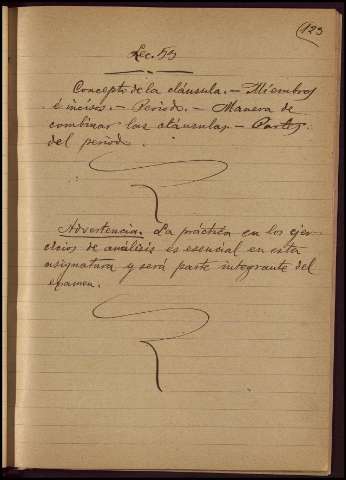 (123
Lec. 59
Concepto de la cláusula. — Miembros
é incisos. — Periodo. — Manera de
combinar las cláusulas. — Partes
del periodo.
Advertencia. La práctica en los ejer-
cicios de análisis es esencial en esta
asignatura y será parte integrante del
examen.